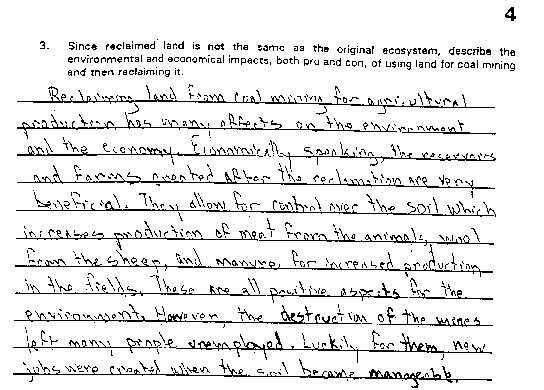 4
3. Since reclaimed land is not the same as the original ecosystem, describe the
environmental and economical impacts, both pro and con, of using land for coal mining
and then reclaiming it.
Reclaiming land from coal mining for agricultural
production has many effects on the environment
and the economy. Economically speaking, the reservoirs
and farms created after the reclamation are very
beneficial. They allow for control over the soil which
increases production of meat from the animals, wool
from the sheep, and manure for increased production
in the fields. These are all positive aspects for the
environment. However, the destruction of the mines
left many people unemployed. Luckily for them, new
jobs were created when the soil became manageable.